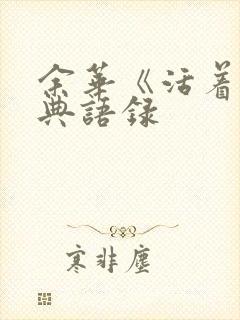 余華《活着
典語錄
寒非塵